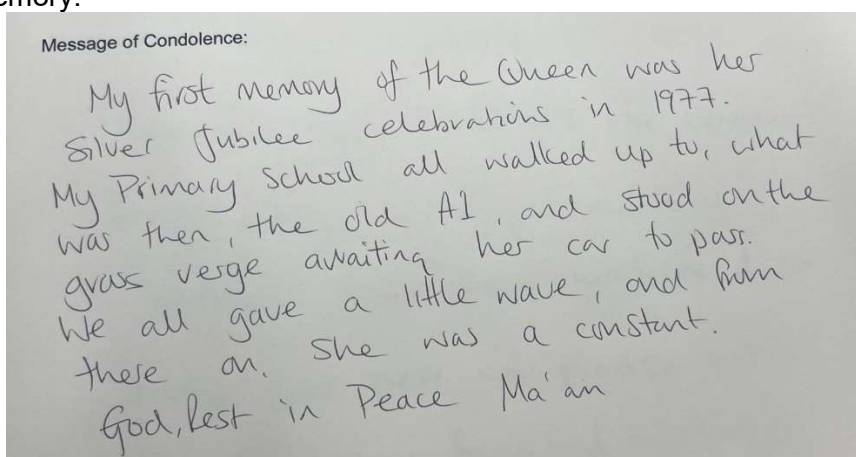 emory.
Message of Condolence:
My first memory of the Queen was her
Silver Jubilee celebrations in 1977.
My Primary School all walked up to, what
was then, the old A1, and stood on the
grass verge awaiting her car to pass.
We all gave a little wave, and from
there on, she was a constant.
God, Rest in Peace Ma'an